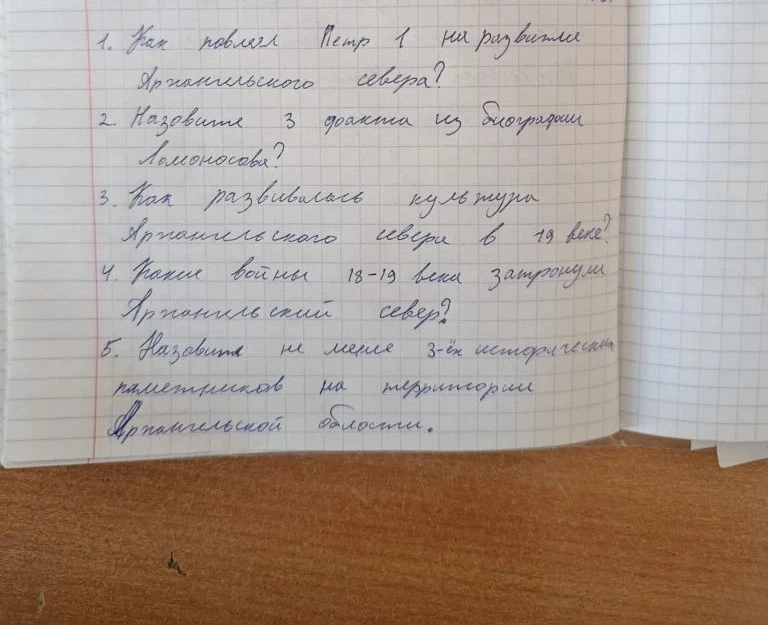 1. Как повлеял Петр 1 на развитие
Архангельского севера?
2. Назовите 3 факта из биографии
Ломоносова?
3. Как развивалась культура
Архангельского севера в 19 веке?
4. Какие войны 18-19 века затронули
Архангельский север?
5. Назовите не менее 3-ёх исторических
паметников на территории
Архангельской области.